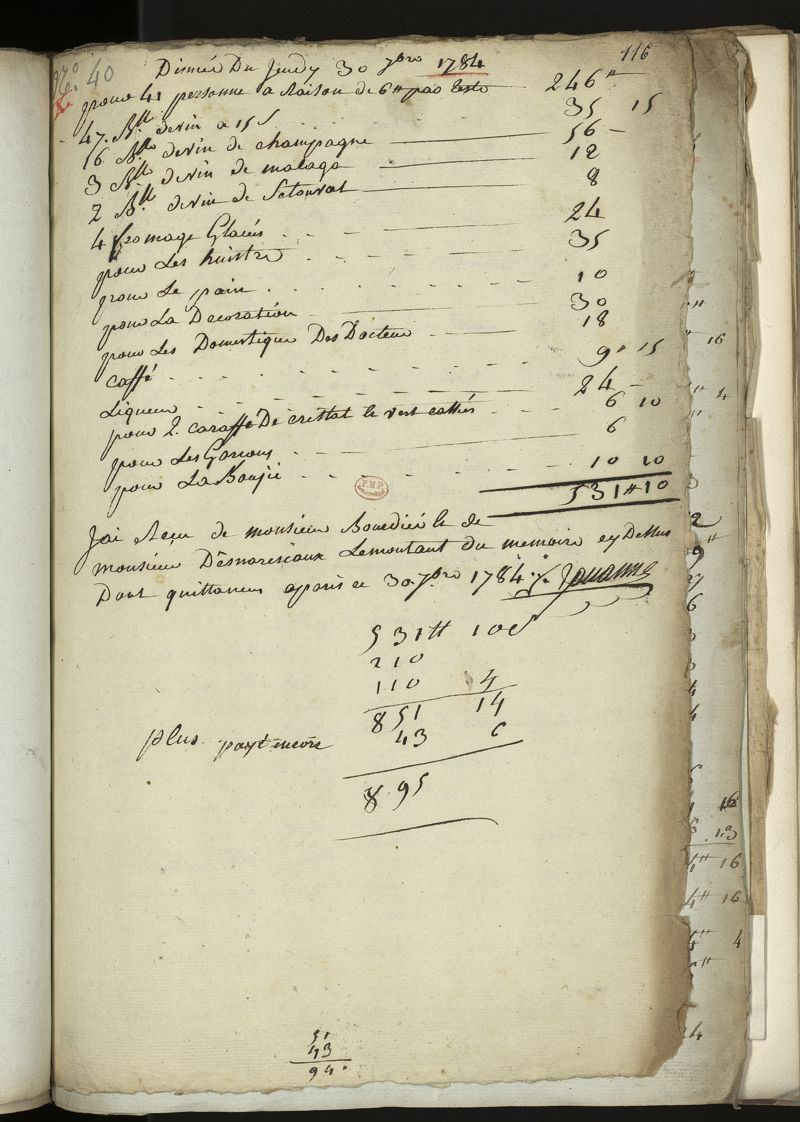 116
N° 40
Disnée Du Jeudy 30 7bre 1784
pour 41 personne a Raison de 6# par teste 246#
47. Bll devin a 15 s 35 15
16 Bll devin de champagne 56
3 Bll devin de malaga 12
2 Bll devin de Setouval 8
4 fromage Glacés 24
pour Les huistre 35
pour Le pain 10
pour La Decoration 30
pour Les Domestique Des Docteur 18
caffé 9# 15
Liqueur 24
pour 2 caraffe De cristal le vert cassés 6 10
pour Les Garcons 6
pour La Bougie 10 10
531# 10
F.M.P.
Jai Reçu de monsieur Bourdié le de
monsieur Desnoresseaux Lemontant du memoire cy Dessus
Dont quittance a paris ce 30 7bre 1784 Jouanne
531# 10s
210
110 4
851 14
plus payé encore 43 6
895
51
43
94
2
9#
6
3
3
4
4
16
4
3
16
13
4# 16
4# 16
4# 4
24